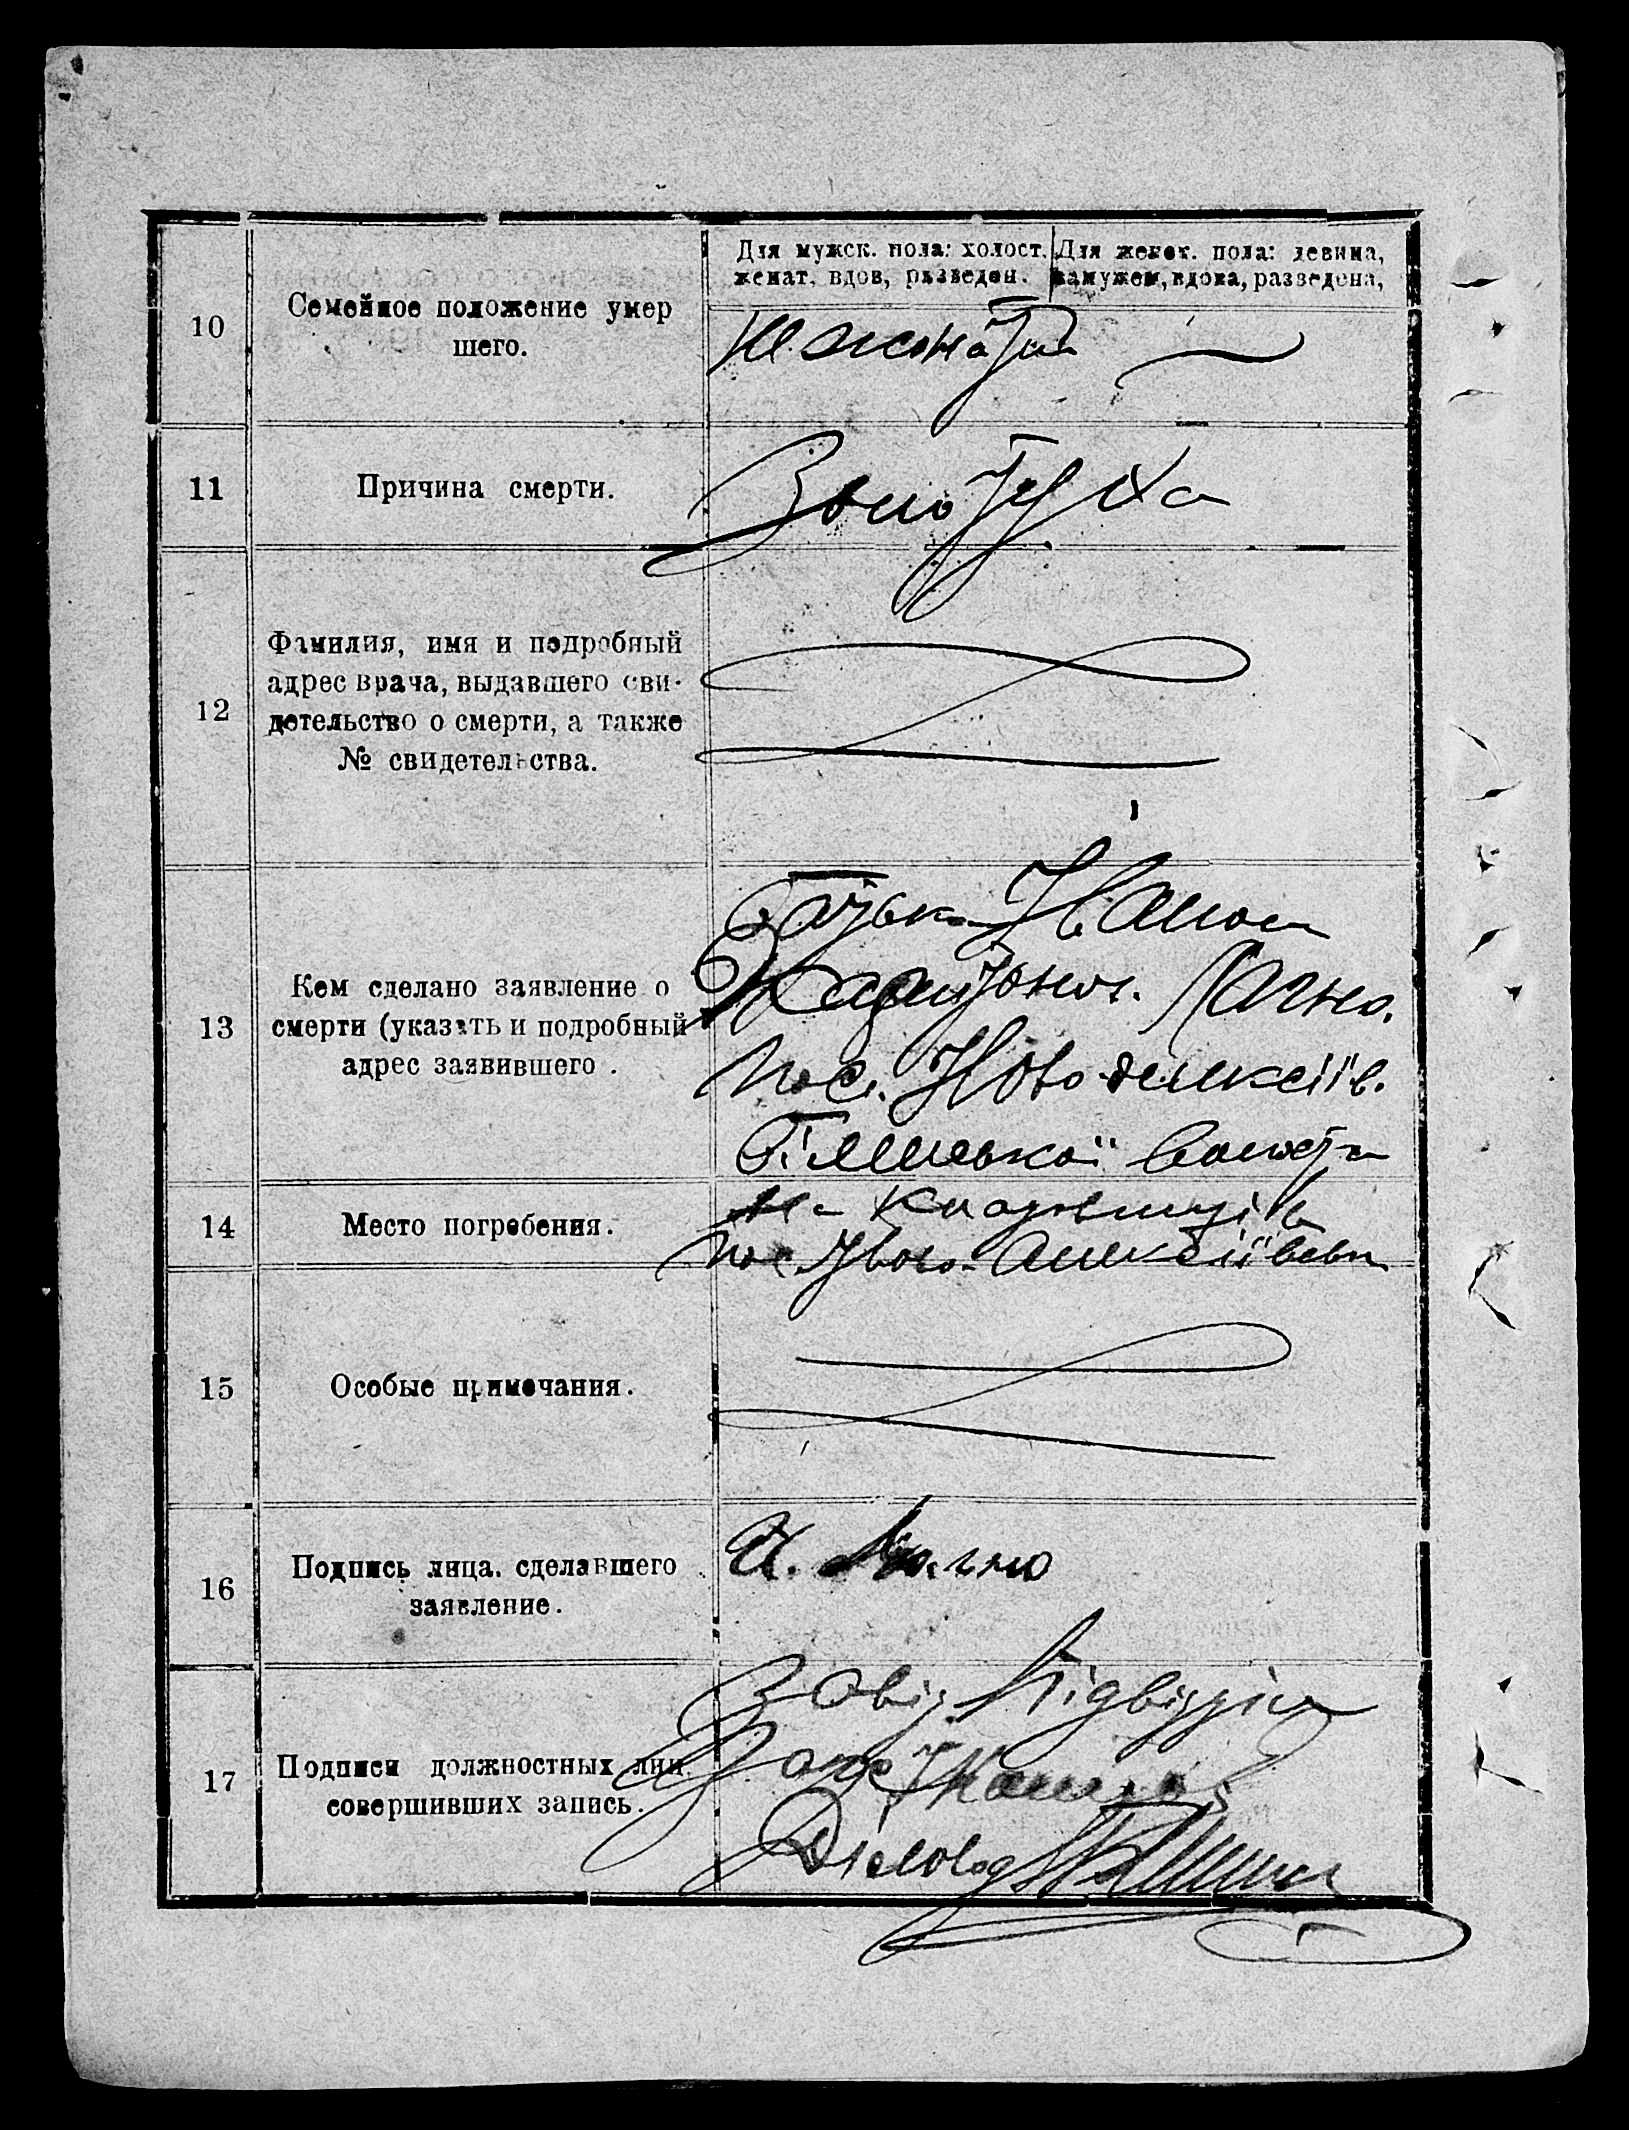 Для мужск. пола: холост. Для женск. пола: девица,
женат, вдов, разведен. замужем, вдова, разведена,
10 Семейное положение умер
шего.
11 Причина смерти. Золотуха
12 Фамилия, имя и подробный
адрес врача, выдавшего сви-
детельство о смерти, а также
№ свидетельства.
Батько Іванов
13 Кем сделано заявление о
смерти (указать и подробный
адрес заявившего.
Харитонов. Лагно.
пос. Ново-олексіїв.
волости
14 Место погребения. на Кладвищі в
пос. Ново-Олексіївеви
15 Особые примечания.
16 Подпись лица, сделавшего
заявление.
Лагно
17 Подписи должностных лиц
совершивших запись.
Завід. Підвідділ
Діловод